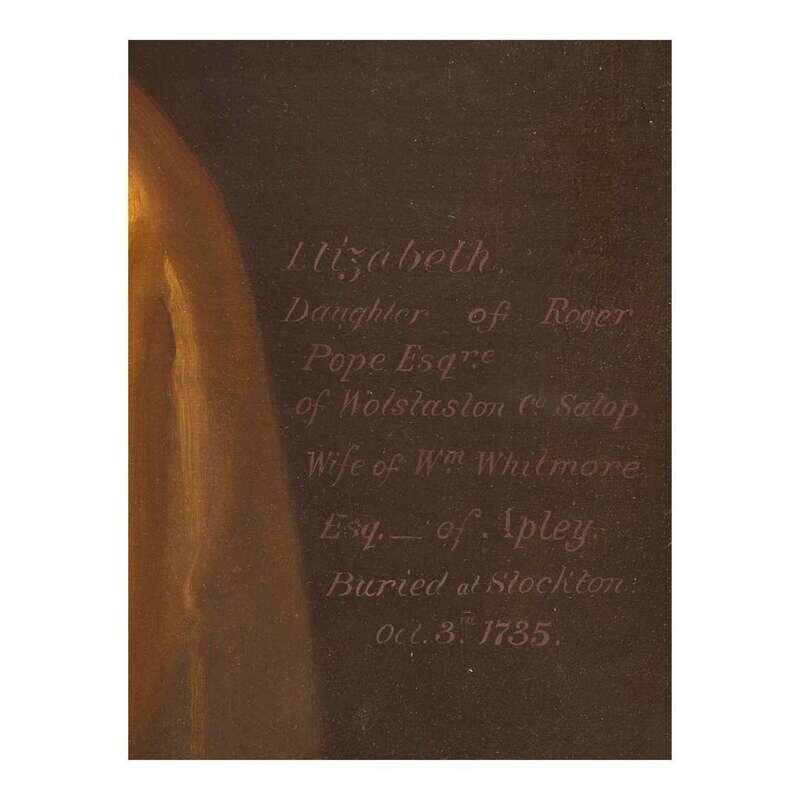 Elizabeth.
Daughter of Roger
Pope Esqre
of Wolstaston Co Salop
Wife of Wm Whitmore
Esq. — of Apley.
Buried at Stockton:
Oct. 3rd 1735.